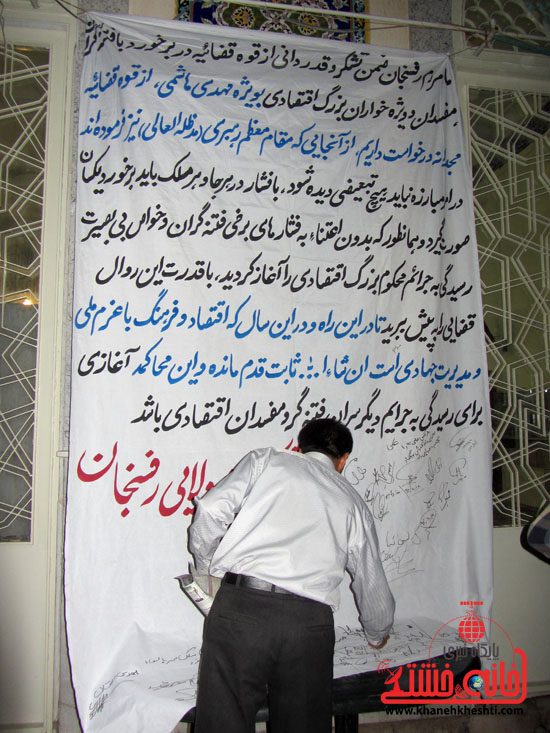 ما مردم رفسنجان ضمن تشکر و قدردانی از قوه قضائیه در برخورد با فتنه گران
مفسدان و ویژه خواران بزرگ اقتصادی بویژه مهدی هاشمی، از قوه قضائیه
مجدانه درخواست داریم، از آنجایی که مقام معظم رهبری (مدظله العالی) نیز فرموده اند
در امر مبارزه نباید هیچ تبعیضی دیده شود، با فشار در هر جا و هر مسلک باید برخورد یکسان
صورت گیرد و همانطور که بدون اعتناء به فشارهای برخی فتنه گران و خواص بی بصیرت
رسیدگی به جرائم محکوم بزرگ اقتصادی را آغاز کردید، با قدرت این روال
قضایی را به پیش ببرید تا در این راه و در این سال که اقتصاد و فرهنگ با عزم ملی
و مدیریت جهادی است ان شاء ا... ثابت قدم مانده و این محاکمه آغازی
برای رسیدگی به جرایم دیگر سران فتنه گر و مفسدان اقتصادی باشد
ولایی رفسنجان
پایگاه خبری
خانه خشتی
www.khanehkheshti.com